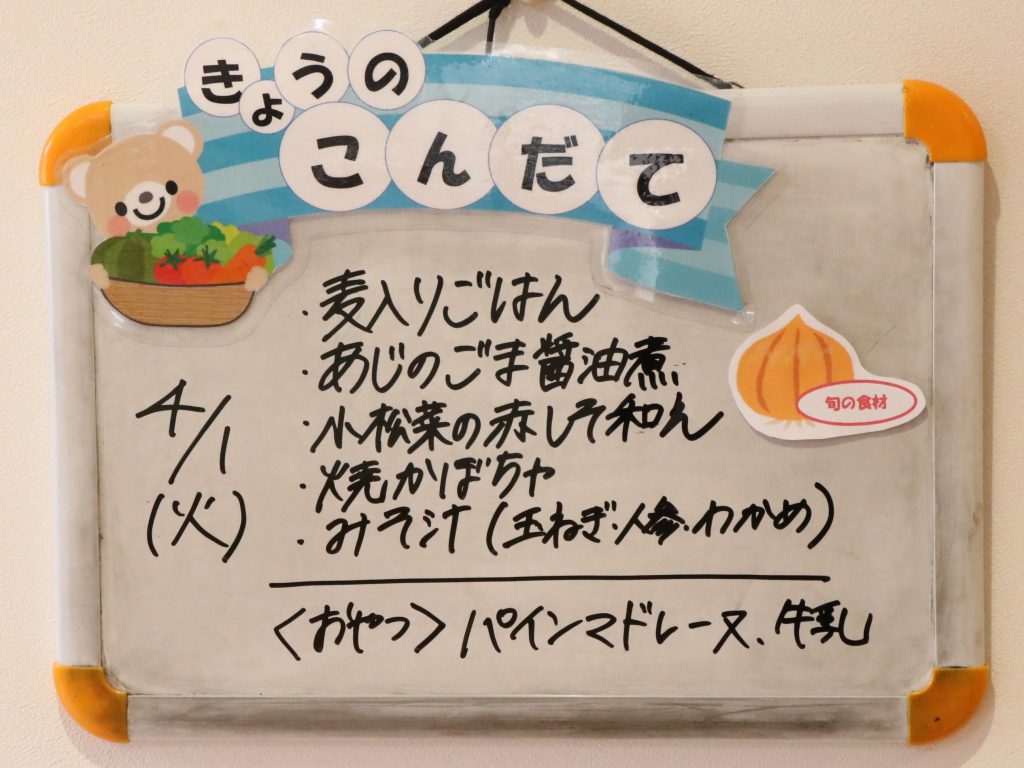 きょうの
こんだて
4/1
(火)
・麦入りごはん
・あじのごま醤油煮
・小松菜の赤しそ和え
・焼かぼちゃ
・みそ汁(玉ねぎ・人参・わかめ)
<おやつ> パインマドレーヌ、牛乳
旬の食材